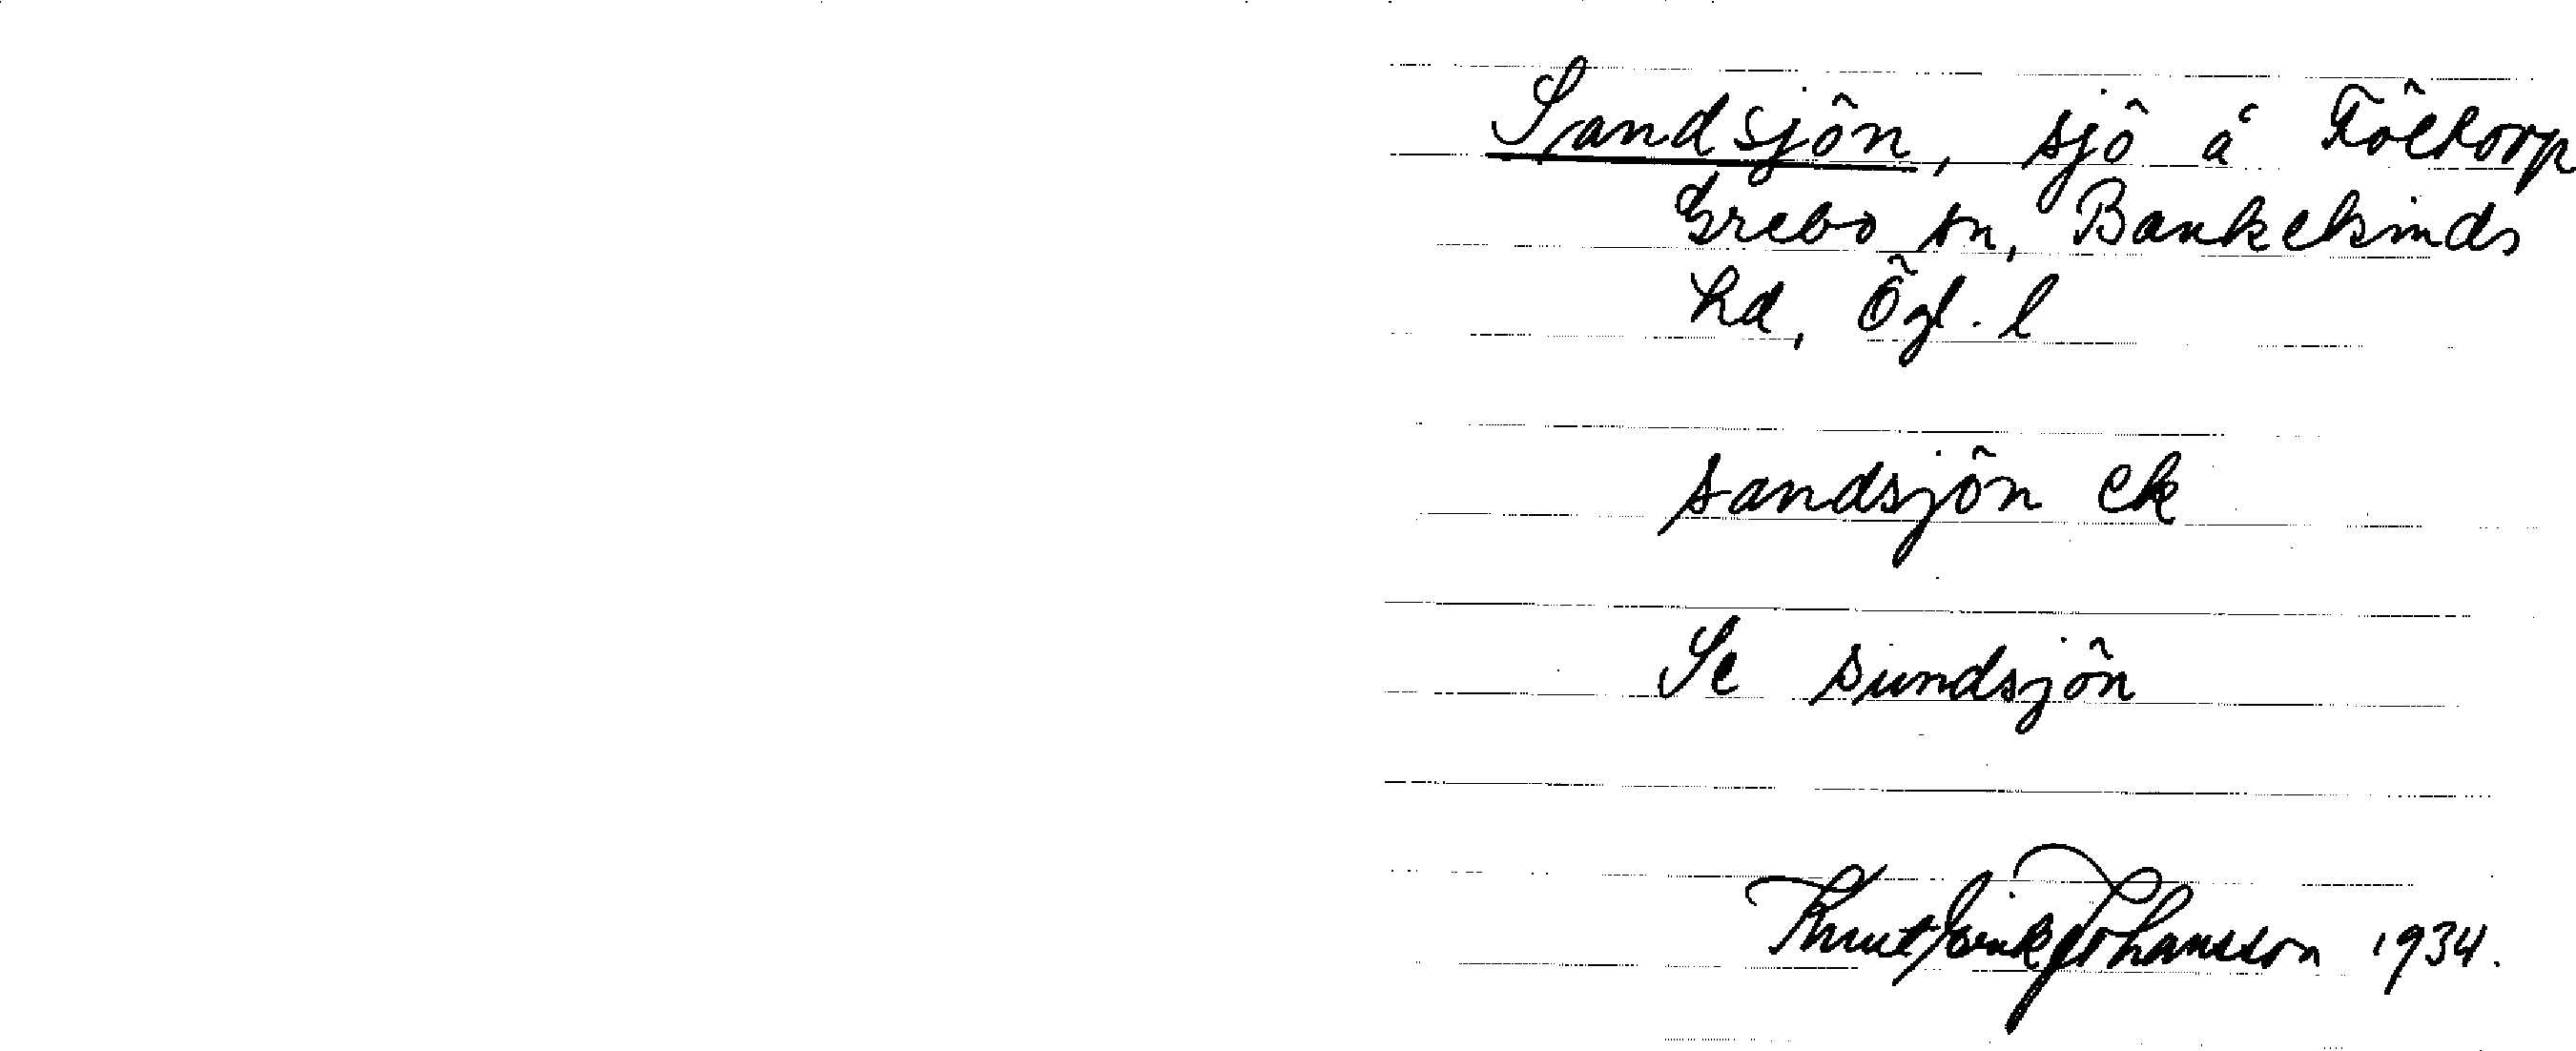 Sandsjön, sjö å Föltorp
Grebo sn, Bankekinds
hd, Ögl. l
sandsjön ek
Se sundsjön
Knut Erik Johansson 1934.